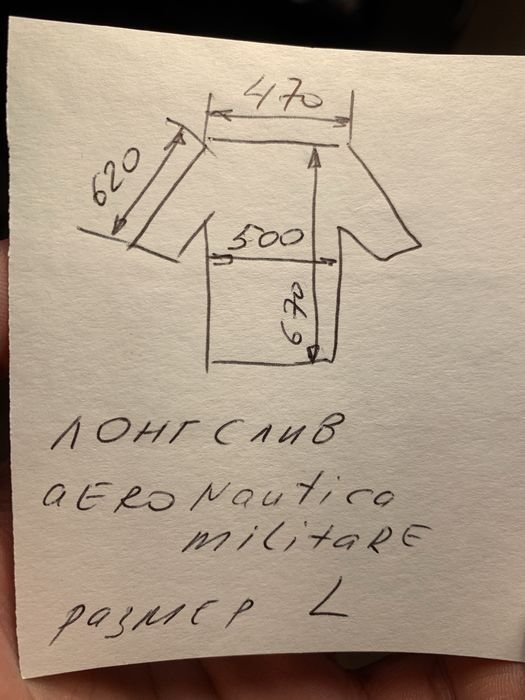 470
620
500
670
лонгслив
aeroNautica
militaRE
размер L